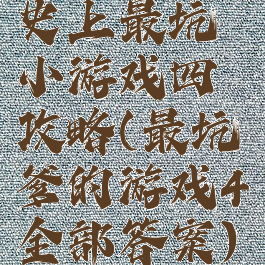 史上最坑
小游戏四
攻略(最坑
爹的游戏4
全部答案)